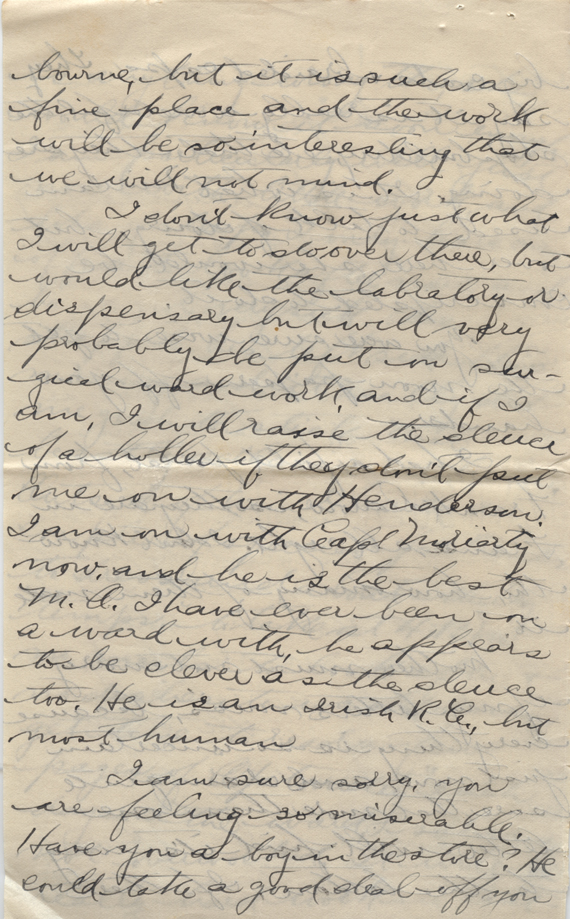 bourne, but it is such a
fine place and the work
will be so interesting that
we will not mind.
I don't know just what
I will get to do over there, but
would like the labratory or
dispensary but will very
probably be put on sur-
gical ward work, and if I
am, I will raise the deuce
of a holler if they don't put
me on with Henderson.
I am on with Capt Moriarty
now, and he is the best
M.O. I have ever been on
a ward with, he appears
to be clever as the deuce
too. He is an Irish R.C., but
most human
I am sure sorry, you
are feeling so miserable.
Have you a boy in the store? He
could take a good deal off you